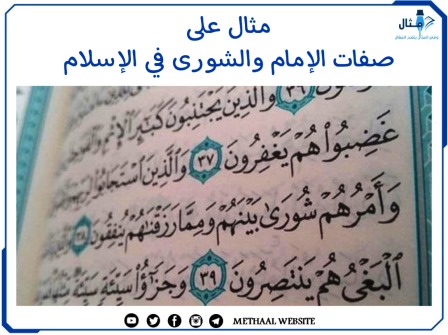 مثال
مثال على
صفات الإمام والشورى في الإسلام
٣٦ وَالَّذِينَ يَجْتَنِبُونَ كَبَٰٓئِرَ ٱلْإِثْمِ
غَضِبُوا۟ هُمْ يَغْفِرُونَ ٣٧ وَٱلَّذِينَ ٱسْتَجَابُوا۟
وَأَمْرُهُمْ شُورَىٰ بَيْنَهُمْ وَمِمَّا رَزَقْنَٰهُمْ يُنفِقُونَ ٣٨
ٱلْبَغْىُ هُمْ يَنتَصِرُونَ ٣٩ وَجَزَٰٓؤُا۟ سَيِّئَةٍ سَيِّئَةٌ مِّثْلُهَا
METHAAL WEBSITE